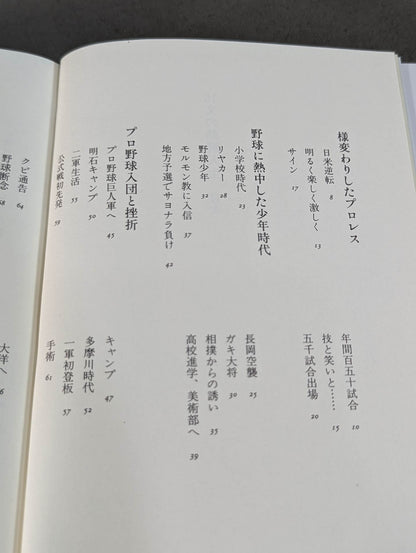 様変わりしたプロレス
日米逆転 8
年間百五十試合 10
明るく楽しく激しく 13
技と笑いと…… 15
サイン 17
五千試合出場 20
野球に熱中した少年時代
小学校時代 23
長岡空襲 25
リヤカー 28
ガキ大将 30
野球少年 32
相撲からの誘い 35
モルモン教に入信 37
高校進学、美術部へ 39
地方予選でサヨナラ負け 42
プロ野球入団と挫折
プロ野球巨人軍へ 45
キャンプ 47
明石キャンプ 50
多摩川時代 52
二軍生活 55
一軍初登板 57
公式戦初先発 59
手術 61
クビ通告 64
大洋へ
野球断念 68